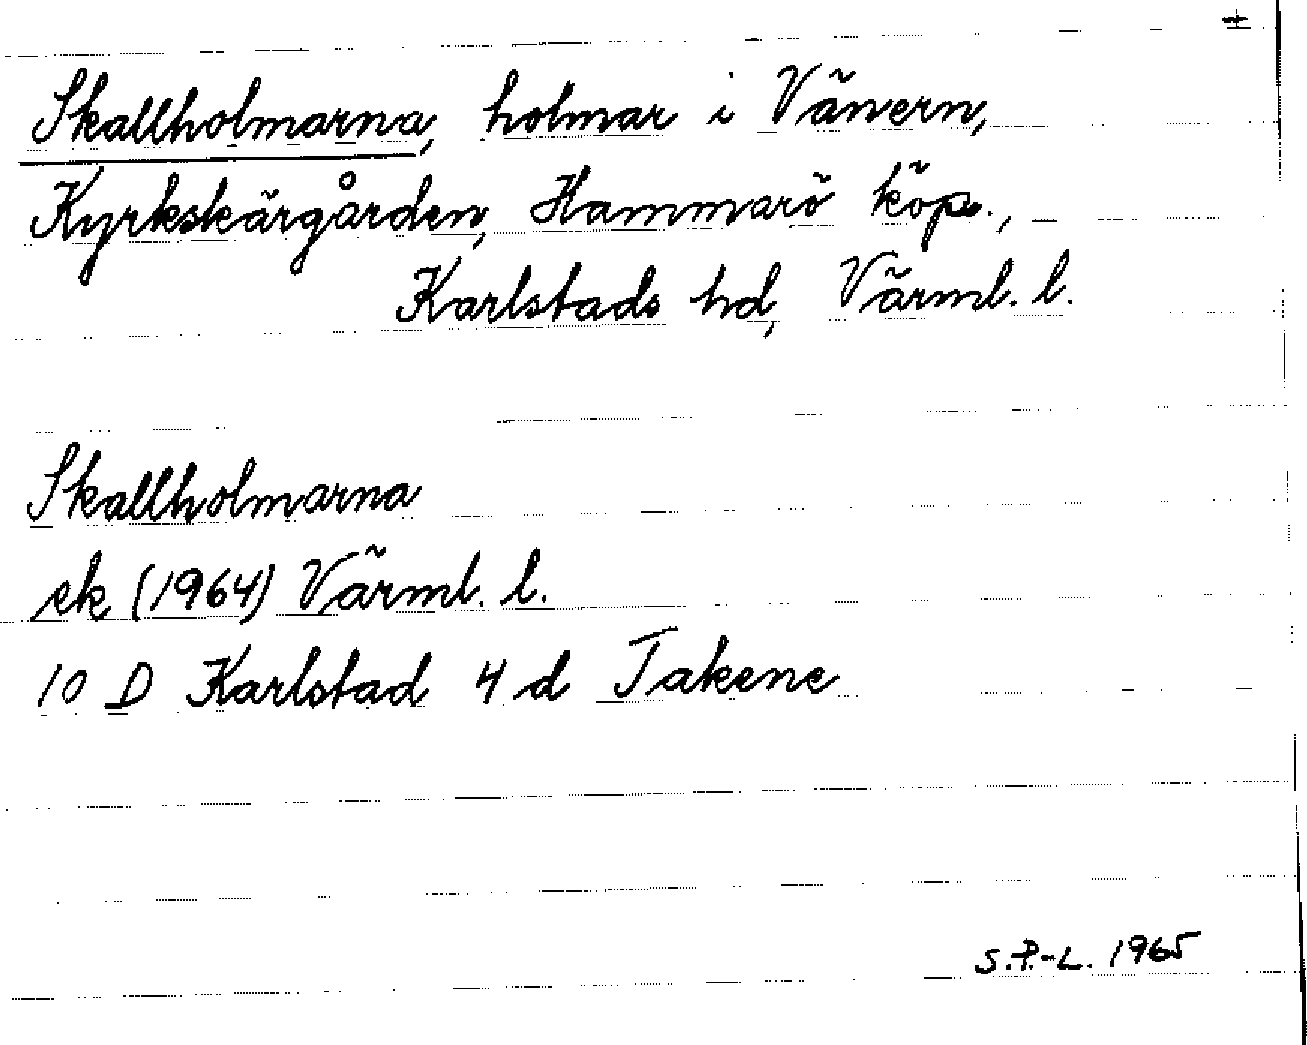 Skallholmarna, holmar i Vänern,
Kyrkskärgården, Hammarö köp.,
Karlstads hd, Värml. l.
Skallholmarna
ek (1964) Värml. l.
10 D Karlstad 4 d Takene
S.P.-L. 1965